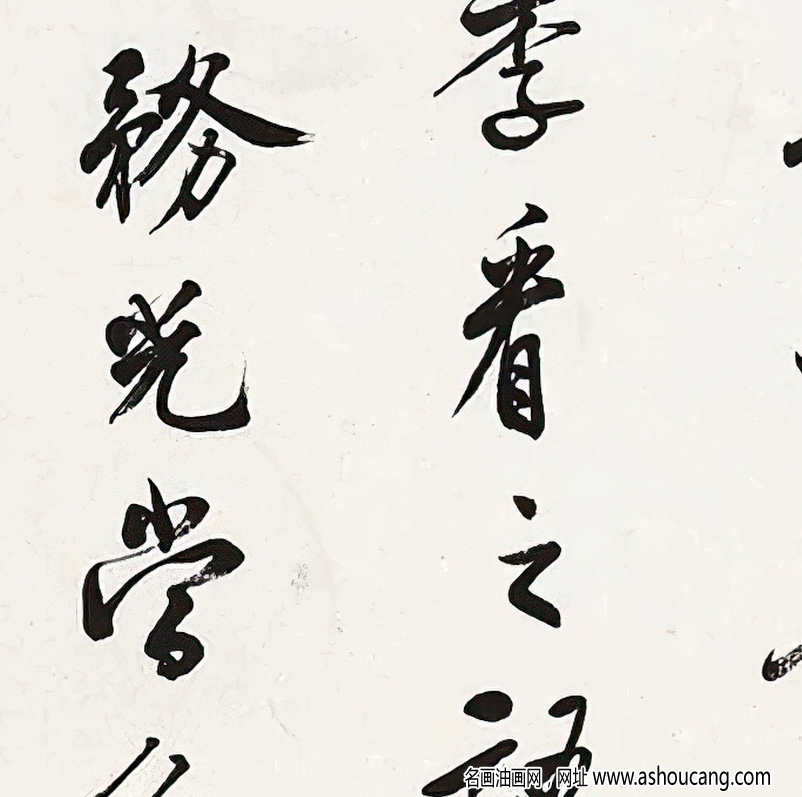 季看之
務光當
名画油画网，网址 www.ashoucang.com